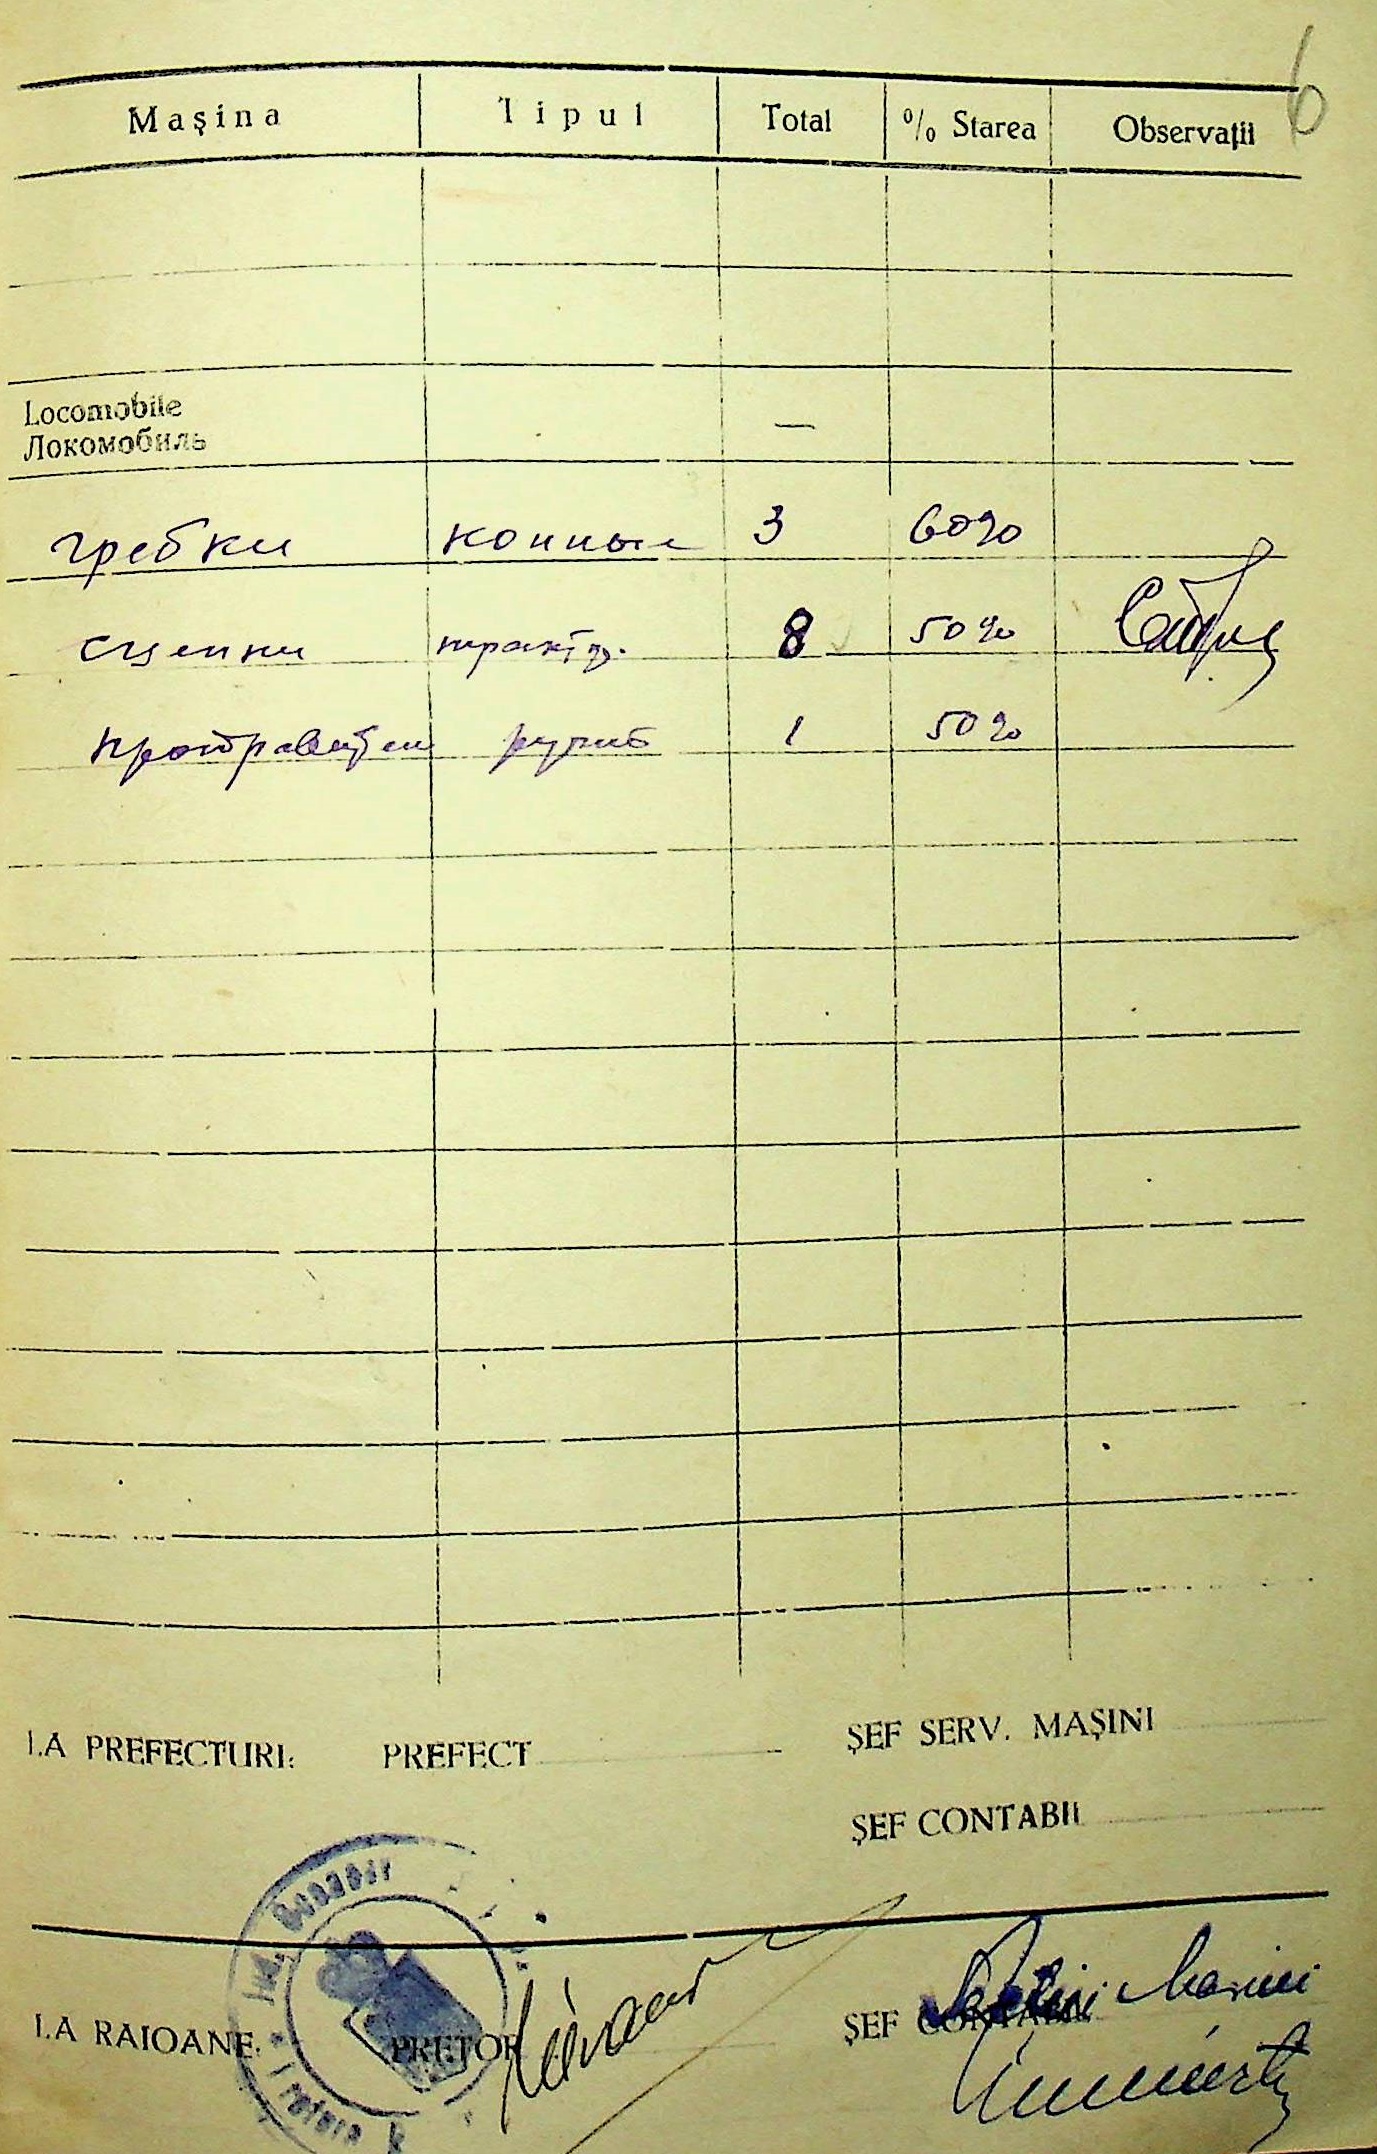 6
Maşina Tipul Total % Starea Observaţii
Locomobile
Локомобиль —
гребки конные 3 60%
сцепки трактр. 8 50%
протравител ручной 1 50%
LA PREFECTURI: PREFECT ŞEF SERV. MAŞINI
ŞEF CONTABIL
LA RAIOANE: PRETOR ŞEF CONTABIL Maşini
Jud.
Pretura